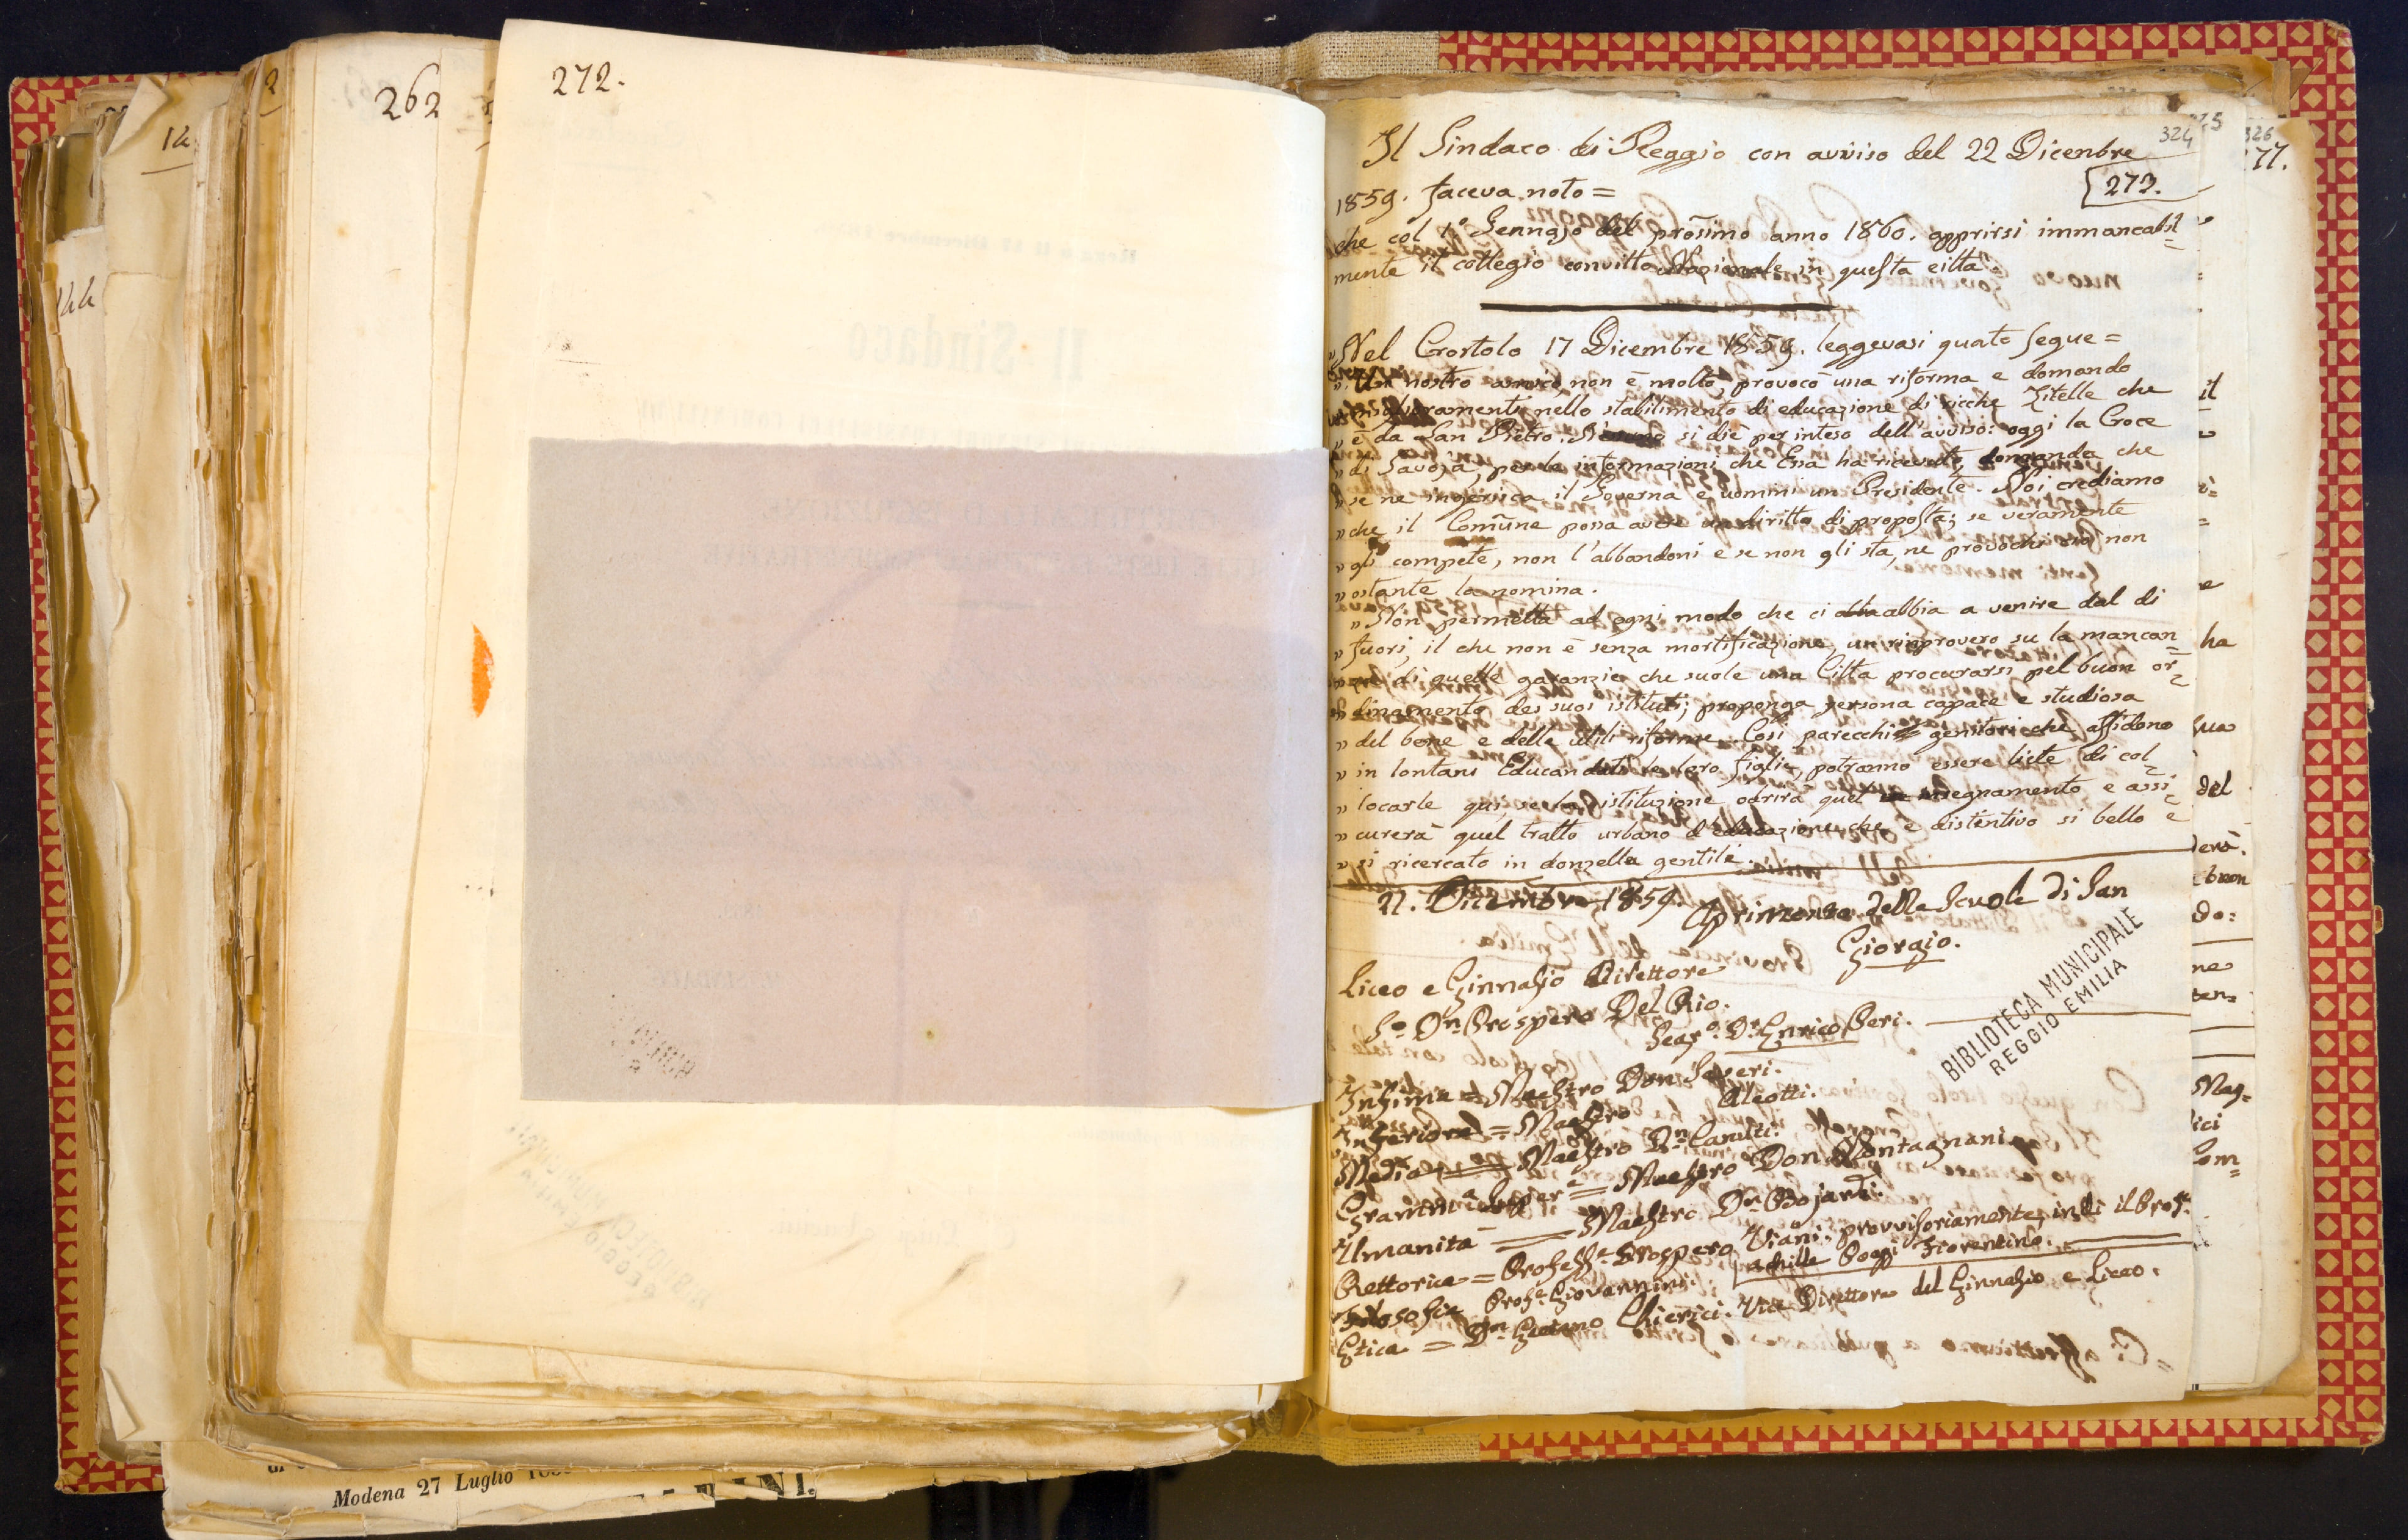 262
272.
Il Sindaco di Reggio con avviso del 22 Dicenbre
324
273.
1859. faceva noto =
che col 1º Gennajo del prosimo anno 1860. apprirsi immancabil=
mente il collegio convitto Nazionale in questa citta.
" Nel Crostolo 17 Dicembre 1859. leggevasi quato segue =
" Un nostro amico, non è molto, provocò una riforma e domando
nello stabilimento di educazione di ricche Zitelle che
" è da San Pietro. si diè per inteso dell'avviso: oggi la Croce
" di Savoja, per le informazioni che Essa ha ricevute, domanda che
" se ne ingerisca il Governa e nomini un Presidente. Noi crediamo
" che il Comune possa avere un diritto di proposta; se veramente
" gli compete, non l'abbandoni e se non gli sta, ne provochi ora non
" ostante la nomina.
" Non permetta ad ogni modo che ci abbia a venire dal di
" fuori, il che non è senza mortificazione, un rinprovero su la mancan=
di quelle garanzie che suole una Citta procurarsi pel buon or=
" dinamento dei suoi istituti; proponga persona capace e studiosa
" del bene e delle utili riforme. Così parecchi genitori che affidono
" in lontani Educandati le loro figlie, potranno essere liete di col=
" locarle qui, se la istituzione odrirà quel insegnamento e assi=
" curerà quel tratto urbano d'educazione che è distentivo si bello e
" si ricercato in donzella gentile.
21. Dicembre 1859. Aprimento delle Scuole di San
Giorgio.
Liceo e Ginnasio Direttore
Dn Prospero Del Rio.
Segro. Dr. Enrico Peri.
BIBLIOTECA MUNICIPALE
REGGIO EMILIA
Infima = Maestro Don Severi.
Inferiore = Maestro Aleotti.
Media = Maestro Dn Canuti.
Gramma Super = Maestro Don Montagnani
Umanità = Maestro Dn Bojardi.
Rettorica = Profess. Prospero Viani, provvisoriamente, indi il Prof.
achille Poggi Fiorentino.
Filosofia Prof. Giovannini.
Etica = Dn Gaetano Chierici. Vice Direttore del Ginnasio e Liceo.
326
77.
il
ha
del
derà.
buon
do:
ne
Mag=
ici
Com=
Modena 27 Luglio